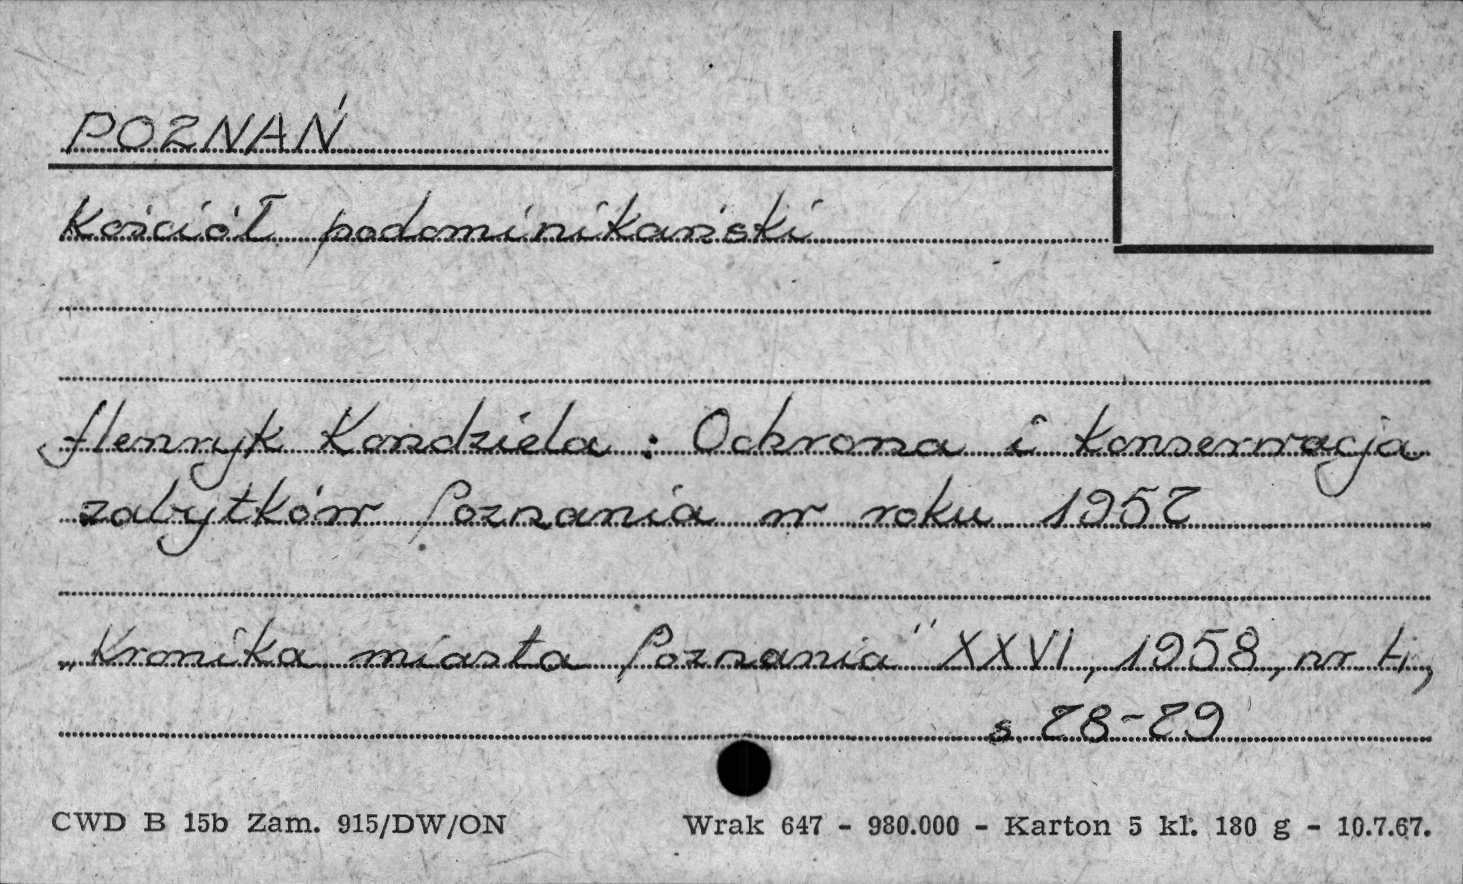 POZNAŃ
Kościół podominikański
Henryk Kondziela : Ochrona i konserwacja
zabytków Poznania w roku 1957
„Kronika miasta Poznania" XXVI, 1958, nr 4,
s. 78-79
CWD B 15b Zam. 915/DW/ON Wrak 647 - 980.000 - Karton 5 kl. 180 g - 10.7.67.